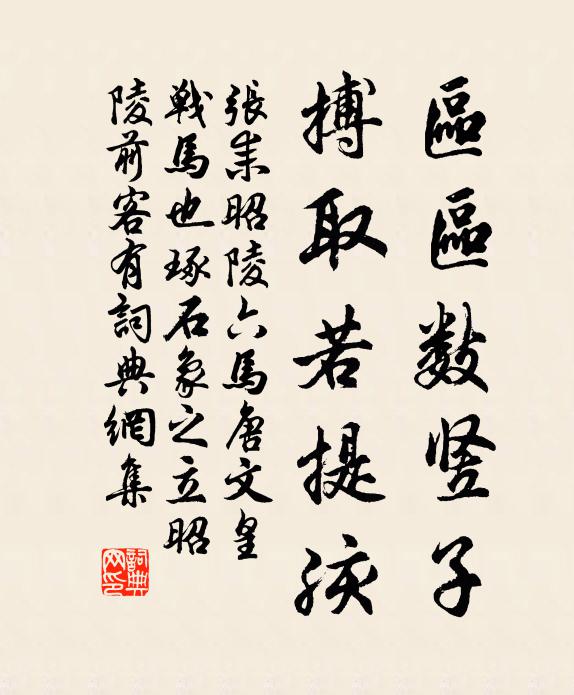 區區數竖子
搏取若提孩
張耒昭陵六馬唐文皇
戦馬也琢石象之立昭
陵前客有詞典網集
詞典
网印